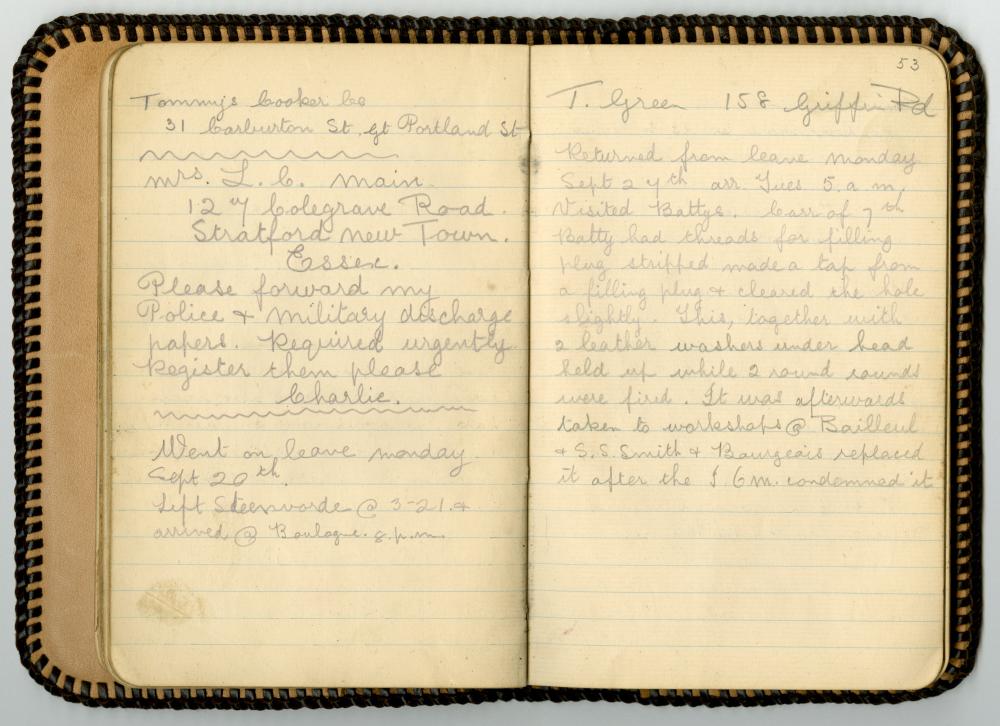 Tommys Cooker Co
31 Carburton St. gt Portland St
mrs. L. C. main
127 Colegrave Road.
Stratford new Town.
Essex.
Please forward my
Police & military discharge
papers. Required urgently
Register them please
Charlie.
Went on leave monday
Sept 20th.
Left Steenvorde @ 3-21. &
arrived @ Boulogne. 8. p.m.
53
T. Green 158 Griffin Rd
Returned from leave monday
Sept 27th arr. Tues 5. a m,
Visited Battys. Carr of 7th
Batty had threads for filling
plug stripped made a tap from
a filling plug & cleared the hole
slightly. This, together with
2 leather washers under head
held up while 2 round rounds
were fired. It was afterwards
taken to workshops @ Bailleul
& S.S. Smith & Bourgeois replaced
it after the I. O m. condemned it